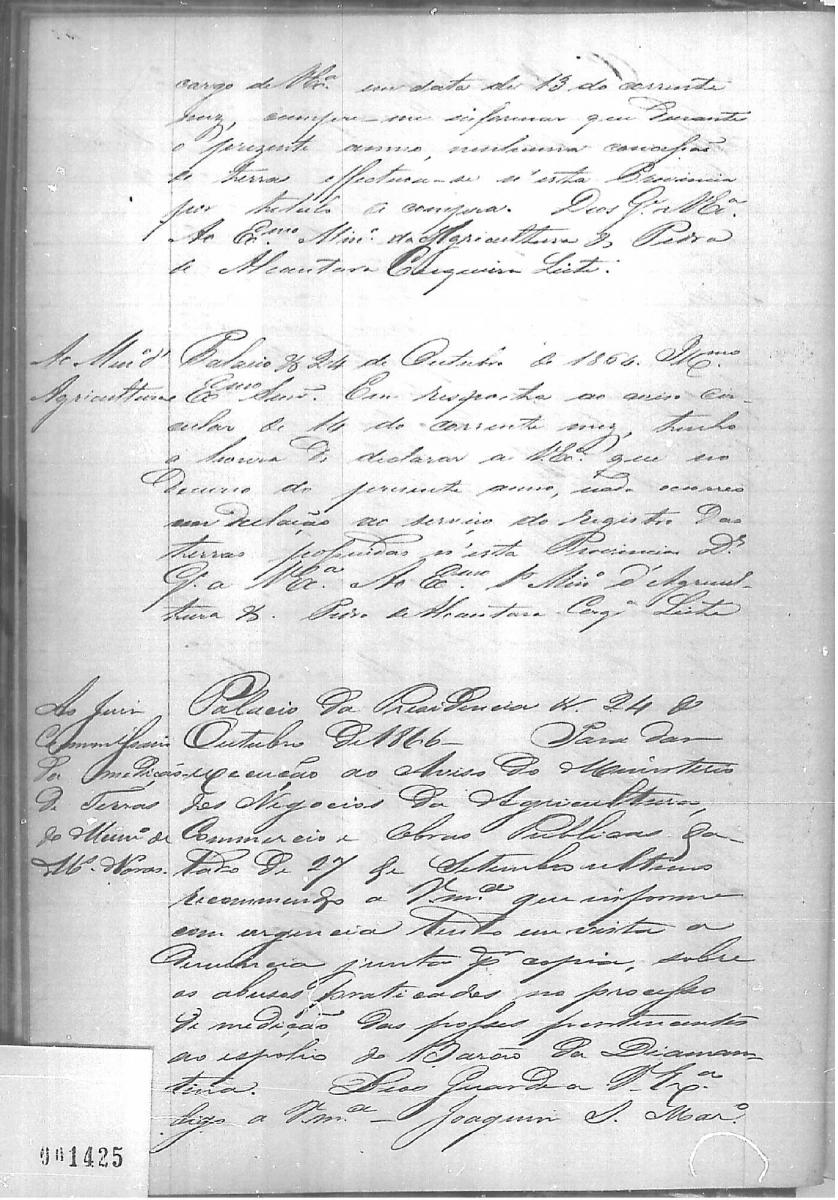 cargo de V Exª em data de 13 do corrente
mez, cumpre-me informar que durante
o prezente anno, nenhuma concessão
de terras effectuou-se n'esta Provincia
por titulo de compra. Deos Gº a V Exª.
Ao Exmo Minº da Agricultura Pedro
de Alcantara Cerqueira Leite.
Ao Minº d'
Agricultura
Palacio 24 de Outubro de 1866. Illmo
Exmo Senr. Em resposta ao aviso cir-
cular de 14 do corrente mez, tenho
a honra de declarar a V Exª. que no
decurso do presente anno, nada occorreo
em relação ao serviço do registro das
terras possuidas n'esta Provincia Ds
Gº a V Exª. Ao Exmo Sr Minº d'Agricul-
tura Pedro de Alcantara Cerqª Leite
Ao Juiz
Commissario
da medição
de Terras
do Munº de
Mªs Novas.
Palacio da Presidencia 24 de
Outubro de 1866 — Para dar
execução ao Aviso do Ministerio
dos Negocios da Agricultura,
Commercio e Obras Publicas da-
tado de 27 de Setembro ultimo
recommendo a Vmce que informe
com urgencia tendo em vista a
denuncia junta pr copia, sobre
os abusos praticados no processo
de medição das posses pertencentes
ao espolio do Barão da Diaman
tina. Deos Guarde a V. Exª.
digo a Vmce — Joaquim J. Marº.
001425